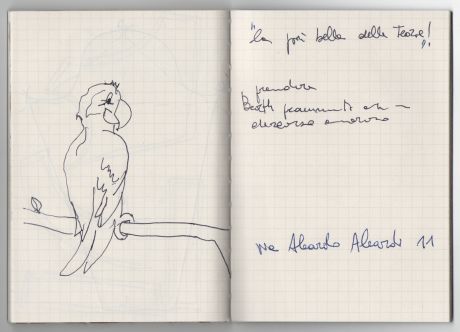 "la più bella delle Terre!"
prendere
Barth frammenti di un
discorso amoroso
via Aleardo Aleardi 11